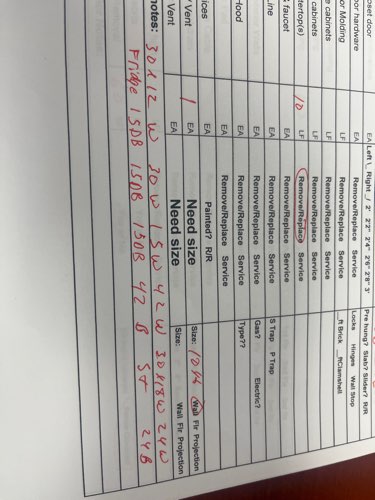 oset door EA Left \_ Right _/ 2' 2'2" 2'4" 2'6" 2'8" 3' Pre hung? Slab? Slider? R/R
oor hardware EA Remove/Replace Service Locks Hinges Wall Stop
or Molding LF Remove/Replace Service _ft Brick _ftClamshell
e cabinets LF Remove/Replace Service
cabinets LF Remove/Replace Service
tertop(s) 10 LF Remove/Replace Service
& faucet EA Remove/Replace Service
Line EA Remove/Replace Service S Trap P Trap
EA Remove/Replace Service Gas? Electric?
Hood EA Remove/Replace Service Type??
EA Remove/Replace Service
ices EA Painted? R/R
Vent 1 EA Need size Size: Wall Flr Projection
Vent EA Need size Size: Wall Flr Projection
notes: 30x12 W 30W 15W 42W 30x18W 24W
Fridge 15DB 15DB 15DB 42 B ST 24B